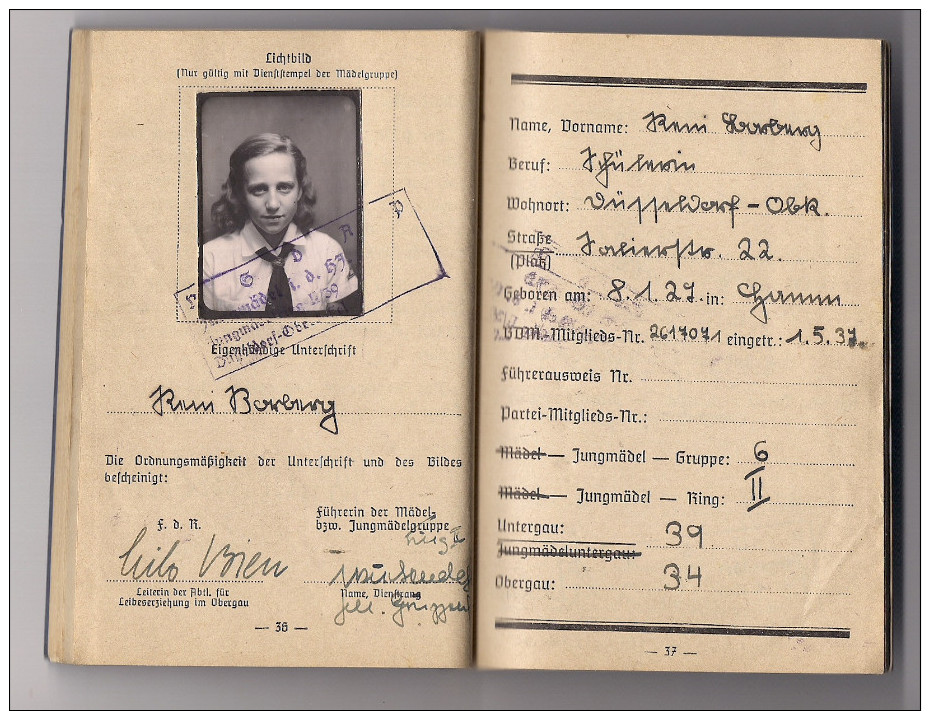 Lichtbild
(Nur gültig mit Dienststempel der Mädelgruppe)
N S D A P
d. HJ
Düsseldorf-Ober
Eigenhändige Unterschrift
Reni Barberg
Die Ordnungsmäßigkeit der Unterschrift und des Bildes
bescheinigt:
F. d. R.
Führerin der Mädel-
bzw. Jungmädelgruppe
Lilo Bien
Leiterin der Abtl. für
Leibeserziehung im Obergau
Name, Dienstrang
— 36 —
Name, Vorname: Reni Barberg
Beruf: Schülerin
Wohnort: Düsseldorf - Obk.
Straße Salierstr. 22.
(Platz)
Geboren am: 8.1.27. in: Hamm
BDM.-Mitglieds-Nr. 2617071 eingetr.: 1.5.37.
Führerausweis Nr.
Partei-Mitglieds-Nr.:
Mädel — Jungmädel — Gruppe: 6
Mädel — Jungmädel — Ring: II
Untergau: 39
Jungmädeluntergau:
Obergau: 34
— 37 —